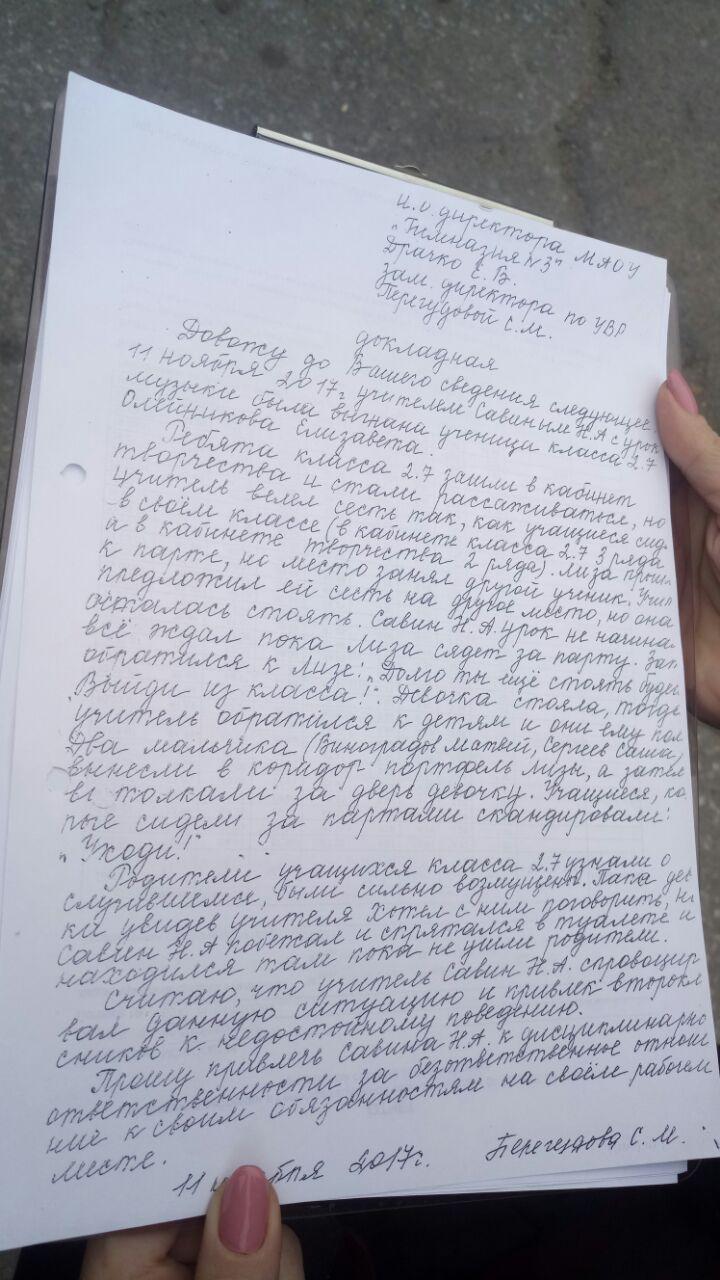 и.о. директора МАОУ
"Гимназия №3"
Драчко Е.В.
зам. директора по УВР
Перегудовой С.М.
докладная
Довожу до Вашего сведения следующее
11 ноября 2017г учителем Савиным Н.А с урок
музыки была выгнана ученица класса 2.7
Олейникова Елизавета.
Ребята класса 2.7 зашли в кабинет
творчества и стали рассаживаться, но
учитель велел сесть так, как учащиеся сид
в своём классе (в кабинете класса 2.7 3 ряда
а в кабинете творчества 2 ряда). Лиза прош
к парте, но место занял другой ученик. Учит
предложил ей сесть на другое место, но она
осталась стоять. Савин Н.А урок не начина
всё ждал пока Лиза сядет за парту. Зат
обратился к Лизе: "Долго ты ещё стоять буде
Выйди из класса!". Девочка стояла, тогда
учитель обратился к детям и они ему пом
Два мальчика (Виноградов Матвей, Сергеев Саша,
вынесли в коридор портфель Лизы, а затем
вы толкали за дверь девочку. Учащиеся, ко
рые сидели за партами скандировали:
"Уходи!"
Родители учащихся класса 2.7 узнали о
случившемся, были сильно возмущены. Папа дев
ки увидев учителя хотел с ним поговорить, но
Савин Н.А побежал и спрятался в туалете и
находился там пока не ушли родители.
Считаю, что учитель Савин Н.А. спровоцир
вал данную ситуацию и привлек второкл
сников к недостойному поведению.
Прошу привлечь Савина Н.А. к дисциплинарно
ответственности за безответственное отнош
ние к своим обязанностям на своём рабочем
месте.
11 ября 2017г. Перегудова С.М.